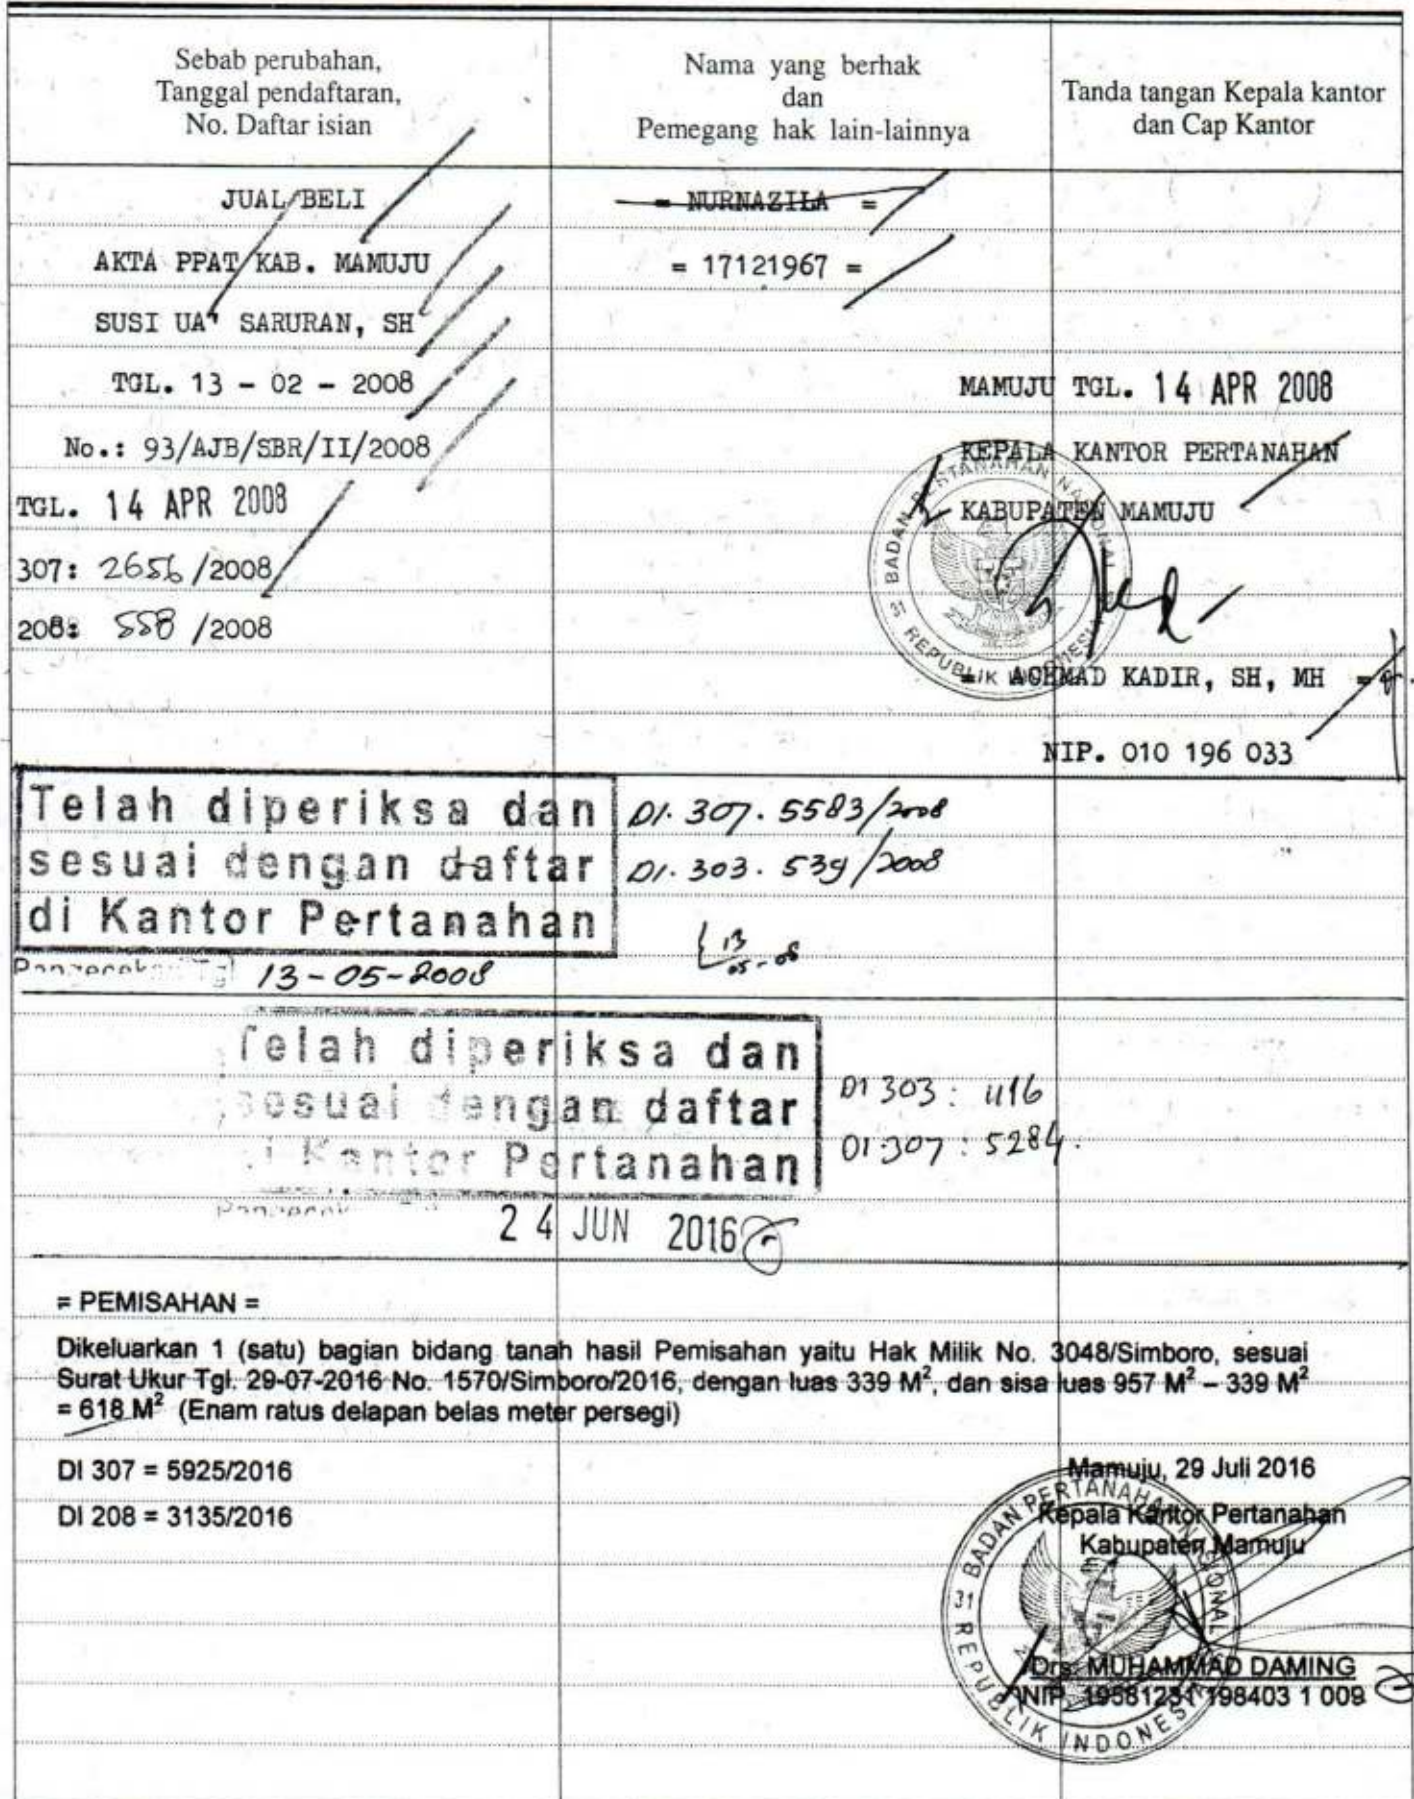 Sebab perubahan,
Tanggal pendaftaran,
No. Daftar isian
Nama yang berhak
dan
Pemegang hak lain-lainnya
Tanda tangan Kepala kantor
dan Cap Kantor
JUAL BELI
AKTA PPAT KAB. MAMUJU
SUSI UA' SARURAN, SH
TGL. 13 - 02 - 2008
No.: 93/AJB/SBR/II/2008
TGL. 14 APR 2008
307: 2656/2008
208: 558 /2008
= NURNAZILA =
= 17121967 =
MAMUJU TGL. 14 APR 2008
KEPALA KANTOR PERTANAHAN
KABUPATEN MAMUJU
BADAN PERTANAHAN NASIONAL
REPUBLIK INDONESIA
31
= ACHMAD KADIR, SH, MH =
NIP. 010 196 033
Telah diperiksa dan
sesuai dengan daftar
di Kantor Pertanahan
Pengecekan Tgl 13-05-2008
DI. 307. 5583/2008
DI. 303. 539/2008
13
05-08
Telah diperiksa dan
sesuai dengan daftar
di Kantor Pertanahan
24 JUN 2016
DI 303 : 1116
DI.307 : 5284.
= PEMISAHAN =
Dikeluarkan 1 (satu) bagian bidang tanah hasil Pemisahan yaitu Hak Milik No. 3048/Simboro, sesuai
Surat Ukur Tgl. 29-07-2016 No. 1570/Simboro/2016, dengan luas 339 M², dan sisa luas 957 M² – 339 M²
= 618 M² (Enam ratus delapan belas meter persegi)
DI 307 = 5925/2016
DI 208 = 3135/2016
Mamuju, 29 Juli 2016
Kepala Kantor Pertanahan
Kabupaten Mamuju
BADAN PERTANAHAN NASIONAL
31
REPUBLIK INDONESIA
Drs. MUHAMMAD DAMING
NIP. 19581231 198403 1 009